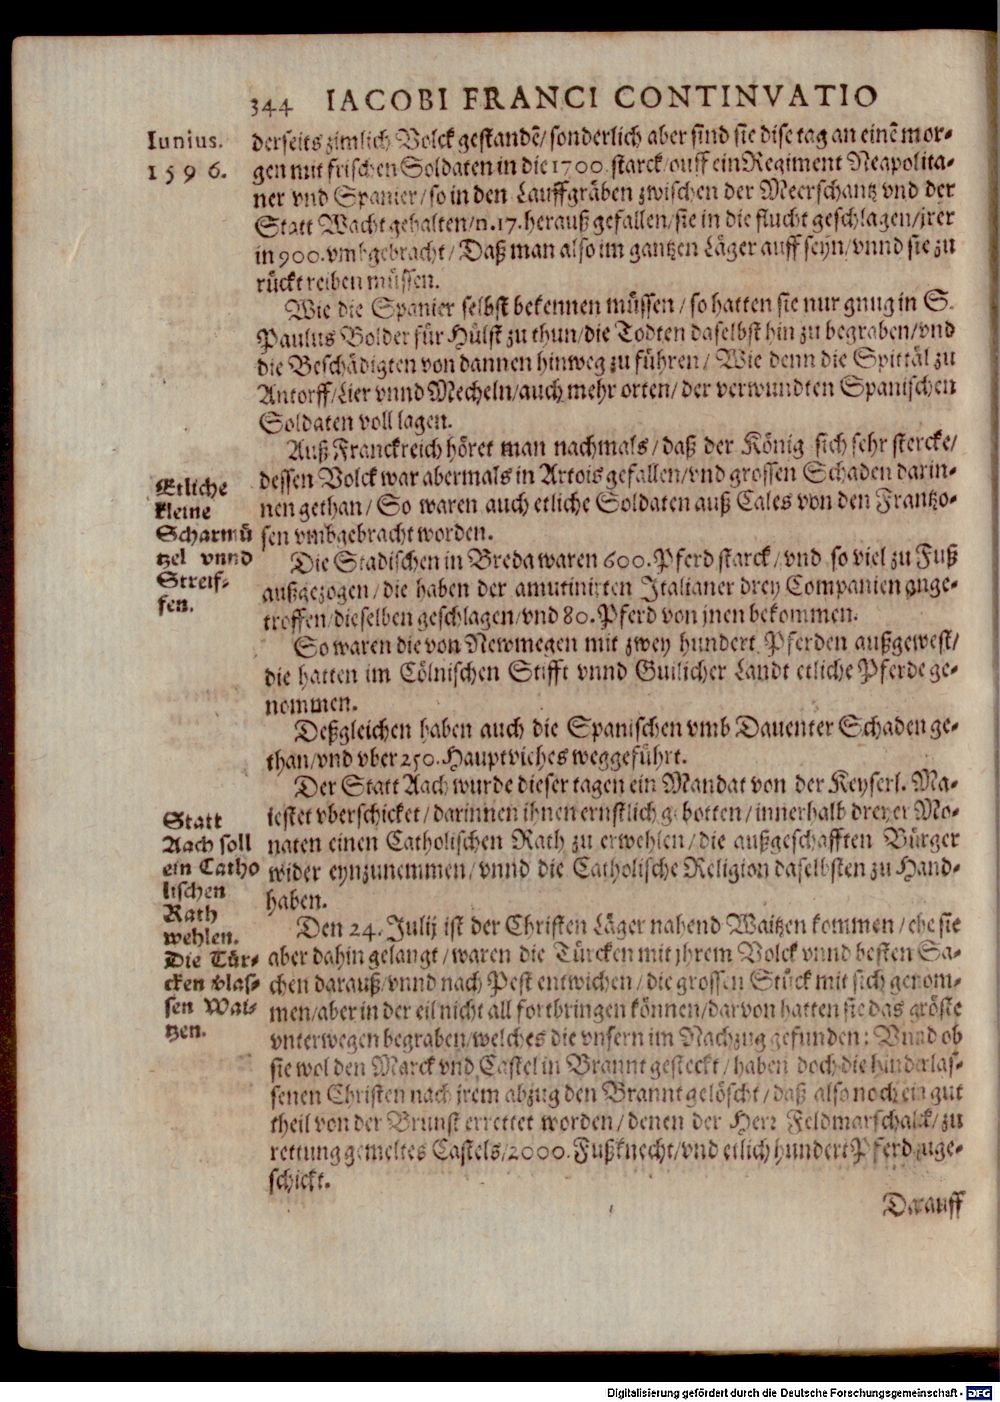 344 IACOBI FRANCI CONTINVATIO
Iunius.
1596.
derseits zimlich Volck gestandē/ sonderlich aber sind sie dise tag an einē mor-
gen mit frischen Soldaten in die 1700. starck/ auff ein Regiment Neapolita-
ner vnd Spanier/ so in den Lauffgräben zwischen der Meerschantz vnd der
Statt Wacht gehalten/ n. 17. herauß gefallen/ sie in die flucht geschlagen/ jrer
in 900. vmbgebracht/ Daß man also im gantzen Läger auff seyn/ vnnd sie zu
rückt reiben müssen.
Wie die Spanier selbst bekennen müssen/ so hatten sie nur gnug in S.
Paulus Polder für Hülst zu thun/ die Todten daselbst hin zu begraben/ vnd
die Beschädigten von dannen hinweg zu führen/ Wie denn die Spittäl zu
Antorff/ Lier vnnd Mecheln/ auch mehr orten/ der verwundten Spanischen
Soldaten voll lagen.
Auß Franckreich höret man nachmals/ daß der König sich sehr stercke/
dessen Volck war abermals in Artois gefallen/ vnd grossen Schaden darin-
nen gethan/ So waren auch etliche Soldaten auß Cales von den Frantzo-
sen vmbgebracht worden.
Etliche
kleine
Scharmü
tzel vnnd
Streif-
fen.
Die Stadischen in Breda waren 600. Pferd starck/ vnd so viel zu Fuß
außgezogen/ die haben der amutinirten Italianer drey Companien ange-
troffen/ dieselben geschlagen/ vnd 80. Pferd von jnen bekommen.
So waren die von Newmegen mit zwey hundert Pferden außgewest/
die hatten im Cölnischen Stifft vnnd Guilicher Landt etliche Pferde ge-
nommen.
Deßgleichen haben auch die Spanischen vmb Dauenter Schaden ge-
than/ vnd vber 250. Hauptviches weggeführt.
Der Statt Aach wurde dieser tagen ein Mandat von der Keyserl. Ma-
iestet vberschicket/ darinnen ihnen ernstlich gebotten/ innerhalb dreyer Mo-
naten einen Catholischen Rath zu erwehlen/ die außgeschafften Bürger
wider eynzunemmen/ vnnd die Catholische Religion daselbsten zu Hand-
haben.
Statt
Aach soll
ein Catho
lischen
Rath
wehlen.
Die Tür-
cken vlas-
sen Wai-
tzen.
Den 24. Julij ist der Christen Läger nahend Waitzen kommen/ ehe sie
aber dahin gelangt/ waren die Türcken mit ihrem Volck vnnd besten Sa-
chen darauß/ vnnd nach Pest entwichen/ die grossen Stück mit sich genom-
men/ aber in der eil nicht all fortbringen können/ darvon hatten sie das gröste
vnterwegen begraben/ welches die vnsern im Nachzug gefunden: Vnnd ob
sie wol den Marck vnd Castel in Brannt gesteckt/ haben doch die hinderlas-
senen Christen nach jrem abzug den Brannt gelöscht/ daß also noch ein gut
theil von der Brunst errettet worden/ denen der Herr Feldmarschalck/ zu
rettung gemeltes Castels/ 2000. Fußknecht/ vnd etlich hundert Pferd zuge-
schickt.
Darauff
Digitalisierung gefördert durch die Deutsche Forschungsgemeinschaft - DFG